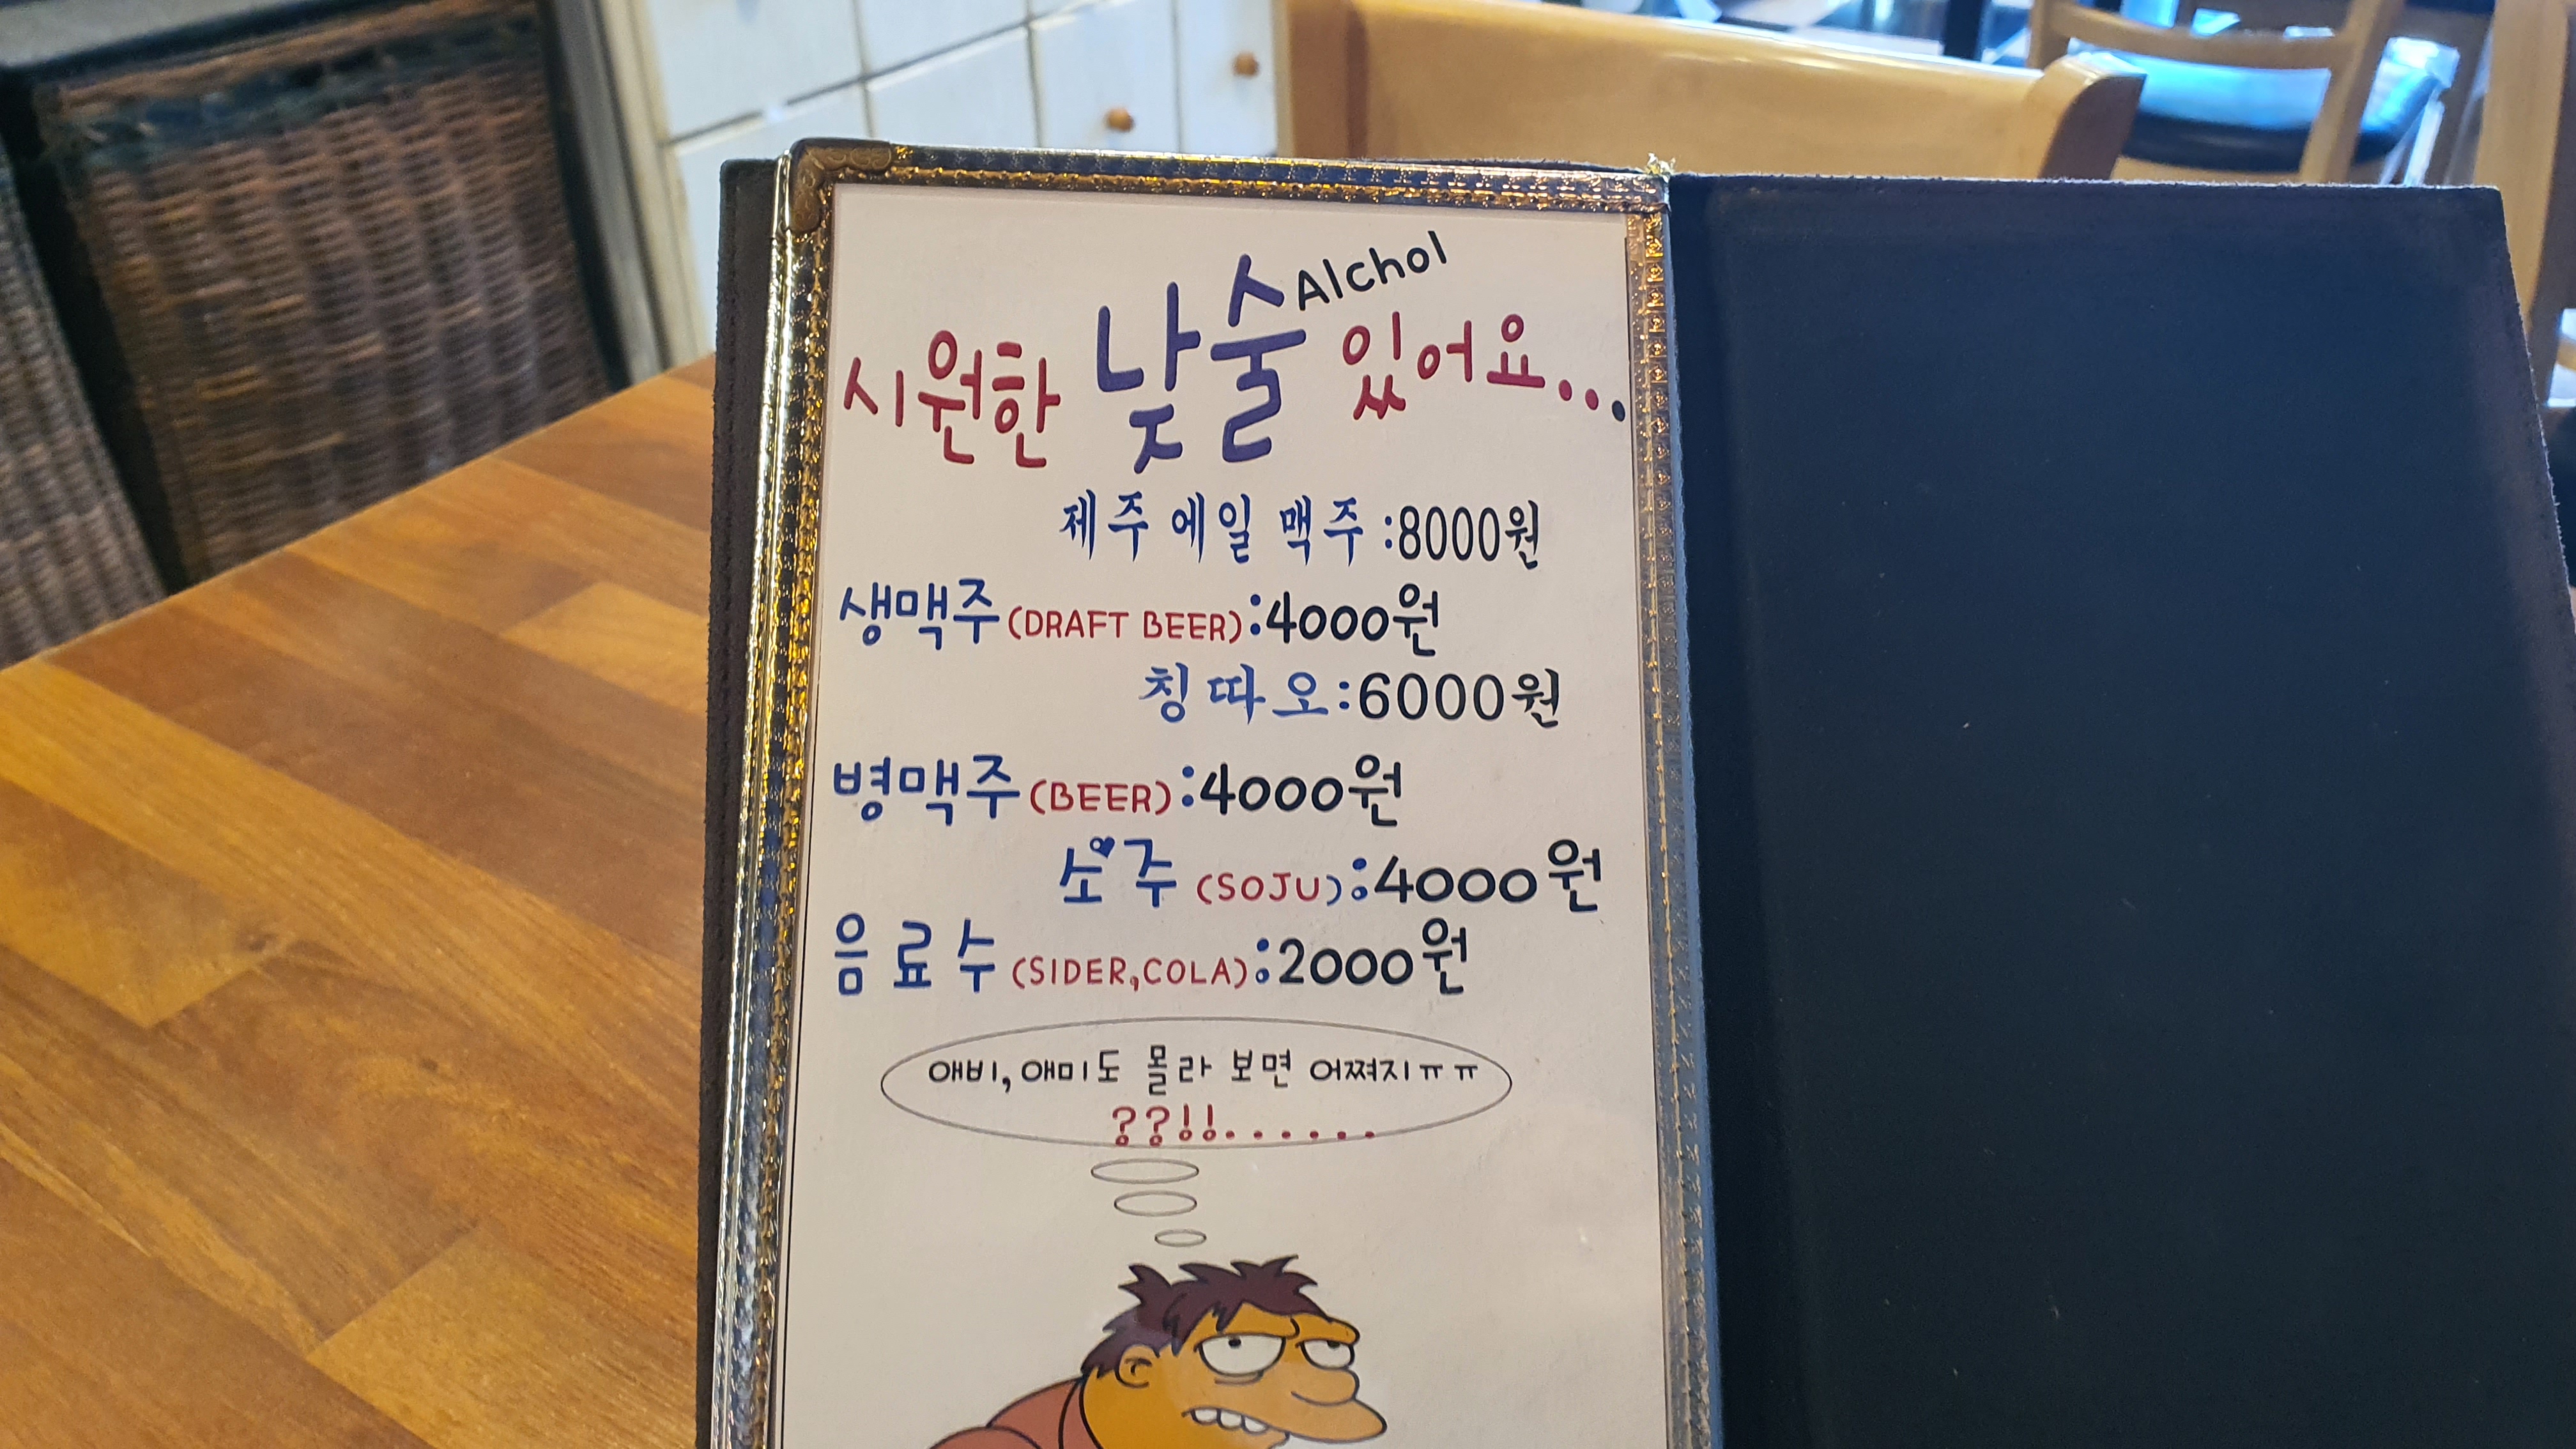 Alchol
시원한 낮술 있어요...
제주 에일 맥주 :8000원
생맥주(DRAFT BEER):4000원
칭따오:6000원
병맥주(BEER):4000원
소주(SOJU):4000원
음료수(SIDER,COLA):2000원
애비,애미도 몰라 보면 어쪄지ㅠㅠ
??!!......